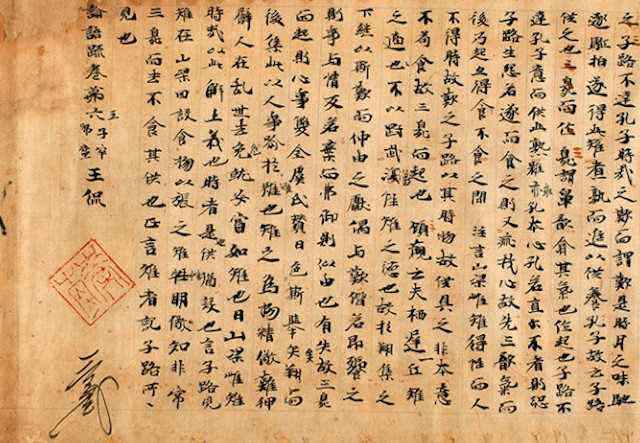 之子路不達孔子時哉之歎而謂歎是時月之味馳
逐駈拍遂得此雉煮熟而進以供養孔子故云子路
供之也三臭而作臭謂鼻歆翕其氣也作起也子路不
達孔子意而供此熟雉乖孔本心孔若直尓不者則恐
子路生怨若遂而食之則又乖我心故先三歎氣而
後乃起亦得食不食之間 注言山梁雌雉得性而人
不得時故歎之子路以其時物故供具之非本意
不苟食故三臭而起也 顧歡云夫栖遲一丘雉
之適也不以武傷性雌之德也故於翔集之
下繼以斯歎而仲由之獻偶与歎諧若即饗之
則事与情反若棄而弗御則似由也有失故三臭
而起則心事雙全虞氏贊曰色斯舉矣翔而
後集此以人事喻於雉也雉之為物精儆難狎
辟人在亂世去危就安當如雉也曰山梁雌雉
時哉以此解上義也時者是也供猶設也言子路見
雉在山梁因設食物以張之雉性明儆知非常
三臭而去不食其供也正言雌者記子路所
見也
論語疏巻第六 王子宰弟 王侃